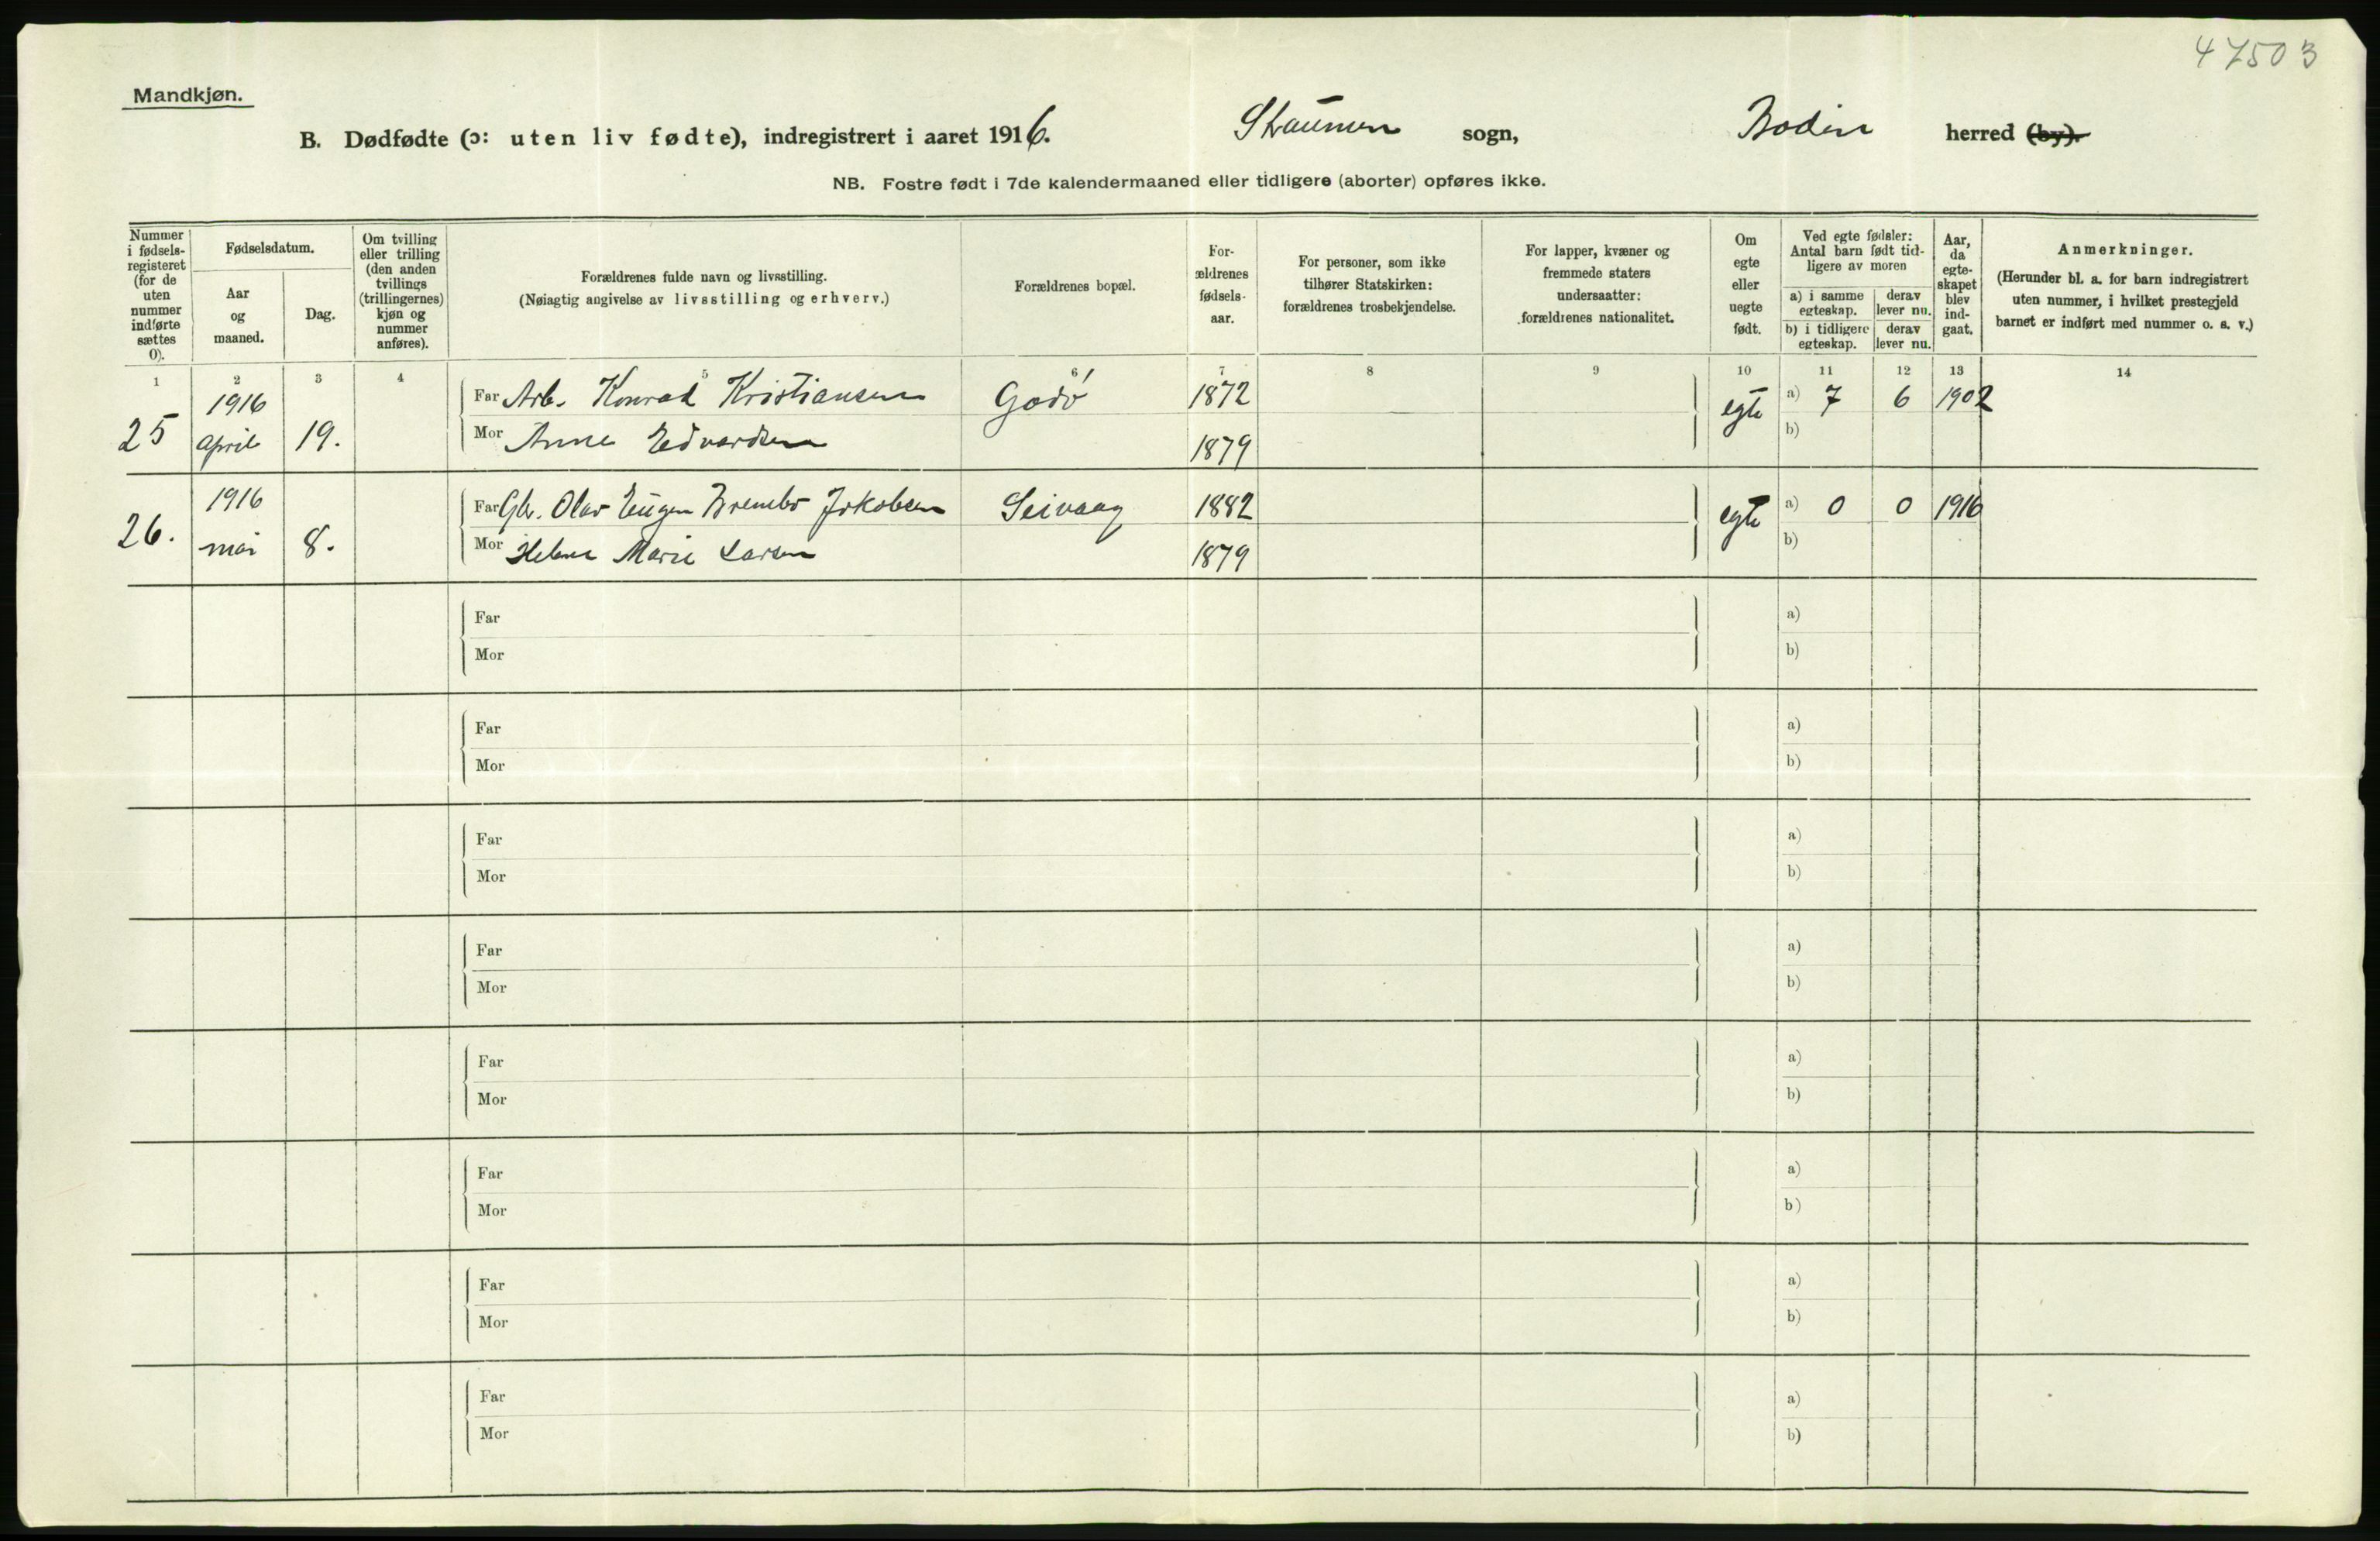 47503
Mandkjøn.
B. Dødfødte (ɔ: uten liv fødte), indregistrert i aaret 1916. Straumen sogn, Bodin herred (by).
NB. Fostre født i 7de kalendermaaned eller tidligere (aborter) opføres ikke.
Nummer i fødselsregisteret (for de uten nummer indførte sættes 0).
Fødselsdatum.
Aar og maaned.
Dag.
Om tvilling eller trilling (den anden tvillings (trillingernes) kjøn og nummer anføres).
Forældrenes fulde navn og livsstilling.
(Nøiagtig angivelse av livsstilling og erhverv.)
Forældrenes bopæl.
Forældrenes fødselsaar.
For personer, som ikke tilhører Statskirken: forældrenes trosbekjendelse.
For lapper, kvæner og fremmede staters undersaatter: forældrenes nationalitet.
Om egte eller uegte født.
Ved egte fødsler: Antal barn født tidligere av moren
a) i samme egteskap. derav lever nu.
b) i tidligere egteskap. derav lever nu.
Aar, da egteskapet blev indgaat.
Anmerkninger.
(Herunder bl. a. for barn indregistrert uten nummer, i hvilket prestegjeld barnet er indført med nummer o. s. v.)
1 2 3 4 5 6 7 8 9 10 11 12 13 14
25 1916 april 19. Far Arb. Konrad Kristiansen Godø 1872 egte a) 7 6 1902
Mor Anne Edvardsen 1879 b)
26. 1916 mai 8. Far Gbr. Olav Eugen Brembo Jakobsen Seivaag 1882 egte a) 0 0 1916
Mor Helene Marie Larsen 1879 b)
Far a)
Mor b)
Far a)
Mor b)
Far a)
Mor b)
Far a)
Mor b)
Far a)
Mor b)
Far a)
Mor b)
Far a)
Mor b)
Far a)
Mor b)